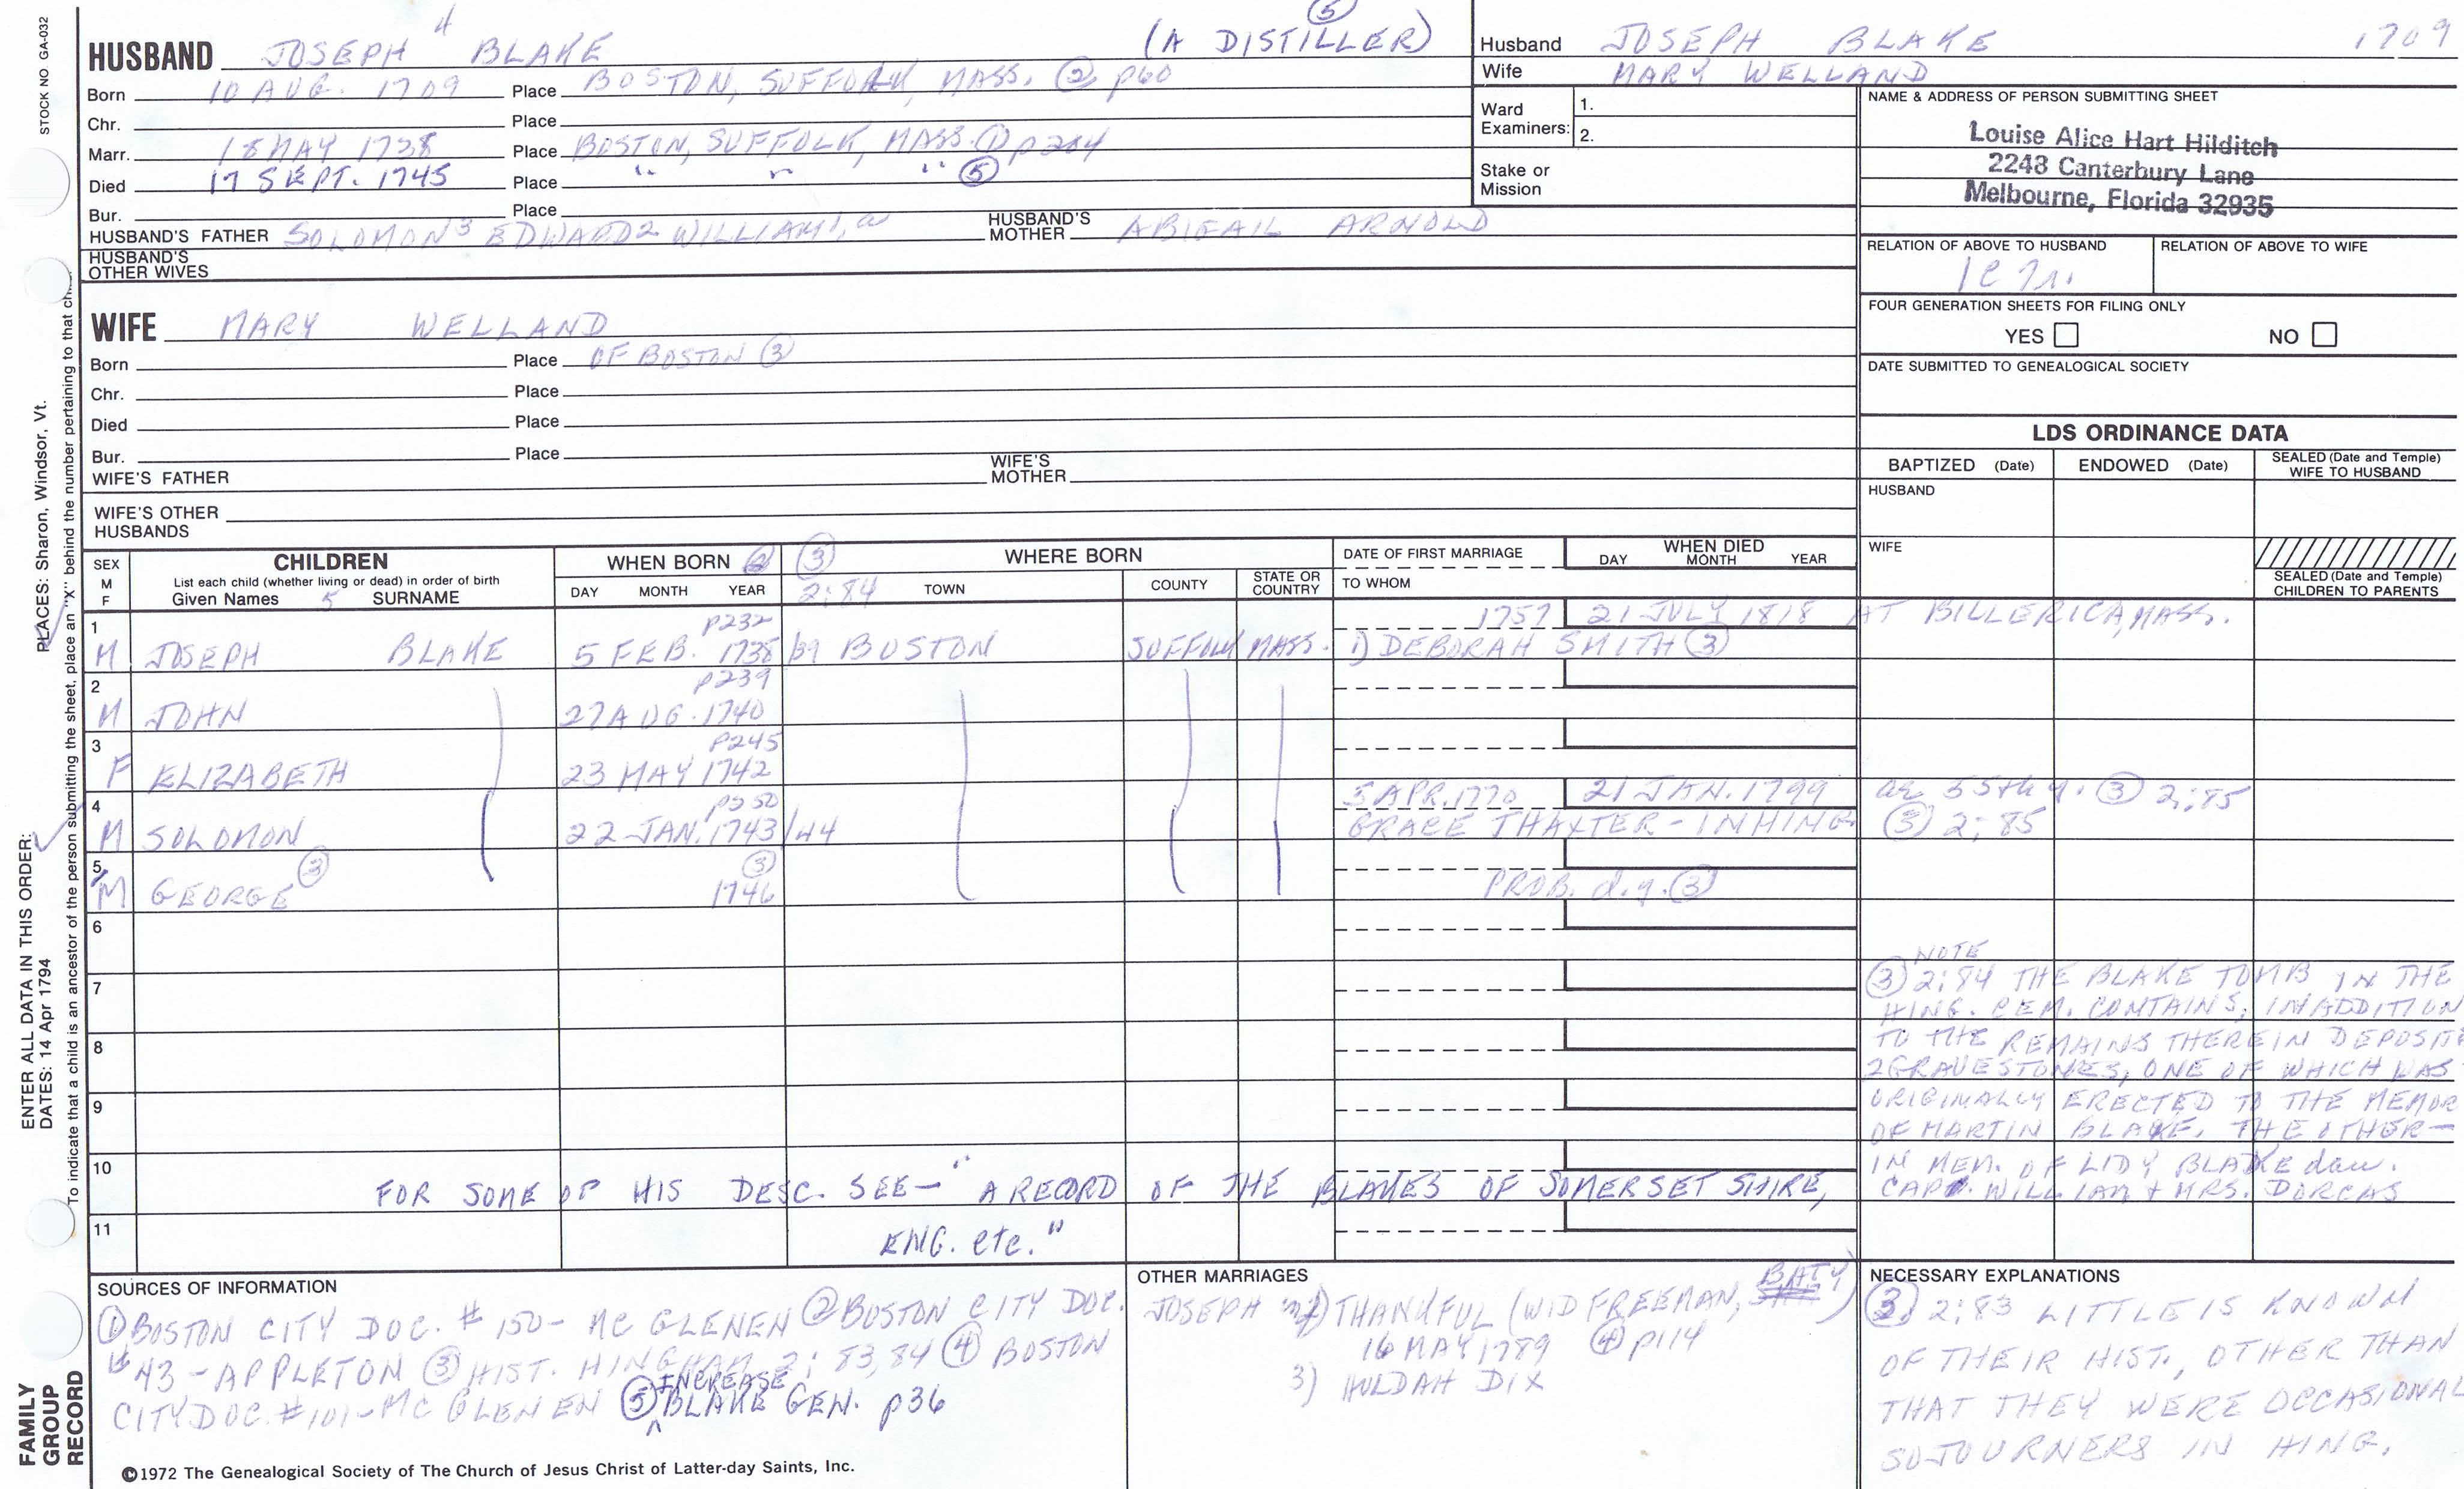 STOCK NO GA-032
HUSBAND JOSEPH 4 BLAKE (A DISTILLER) ⑤
Born 10 AUG. 1709 Place BOSTON, SUFFOLK, MASS. ② p60
Chr. Place
Marr. 18 MAY 1738 Place BOSTON, SUFFOLK, MASS. ① p204
Died 17 SEPT. 1745 Place " " " ⑤
Bur. Place
HUSBAND'S FATHER SOLOMON3 EDWARD2 WILLIAM1, a HUSBAND'S MOTHER ABIGAIL ARNOLD
HUSBAND'S OTHER WIVES
Husband JOSEPH BLAKE 1709
Wife MARY WELLAND
Ward Examiners: 1.
2.
Stake or Mission
NAME & ADDRESS OF PERSON SUBMITTING SHEET
Louise Alice Hart Hilditch
2248 Canterbury Lane
Melbourne, Florida 32935
RELATION OF ABOVE TO HUSBAND RELATION OF ABOVE TO WIFE
FOUR GENERATION SHEETS FOR FILING ONLY
YES NO
DATE SUBMITTED TO GENEALOGICAL SOCIETY
WIFE MARY WELLAND
Born Place OF BOSTON ③
Chr. Place
Died Place
Bur. Place
WIFE'S FATHER WIFE'S MOTHER
WIFE'S OTHER HUSBANDS
LDS ORDINANCE DATA
BAPTIZED (Date) ENDOWED (Date) SEALED (Date and Temple) WIFE TO HUSBAND
HUSBAND
WIFE
SEALED (Date and Temple) CHILDREN TO PARENTS
SEX M F CHILDREN List each child (whether living or dead) in order of birth Given Names 5 SURNAME
WHEN BORN ② DAY MONTH YEAR
③ 2:84 WHERE BORN TOWN COUNTY STATE OR COUNTRY
DATE OF FIRST MARRIAGE TO WHOM
WHEN DIED DAY MONTH YEAR
1 p232 1757 21 JULY 1818 AT BILLERICA, MASS.
M JOSEPH BLAKE 5 FEB. 1738/39 BOSTON SUFFOLK MASS. 1) DEBORAH SMITH ③
2 p239
M JOHN 27 AUG. 1740
3 p245
F ELIZABETH 23 MAY 1742
4 p250 5 APR. 1770 21 JAN. 1799 ae 55th y. ③ 2:85
M SOLOMON 22 JAN. 1743/44 GRACE THAXTER - IN HING ③ 2:85
5 ③
M GEORGE ③ 1746 PROB. d.y. ③
6
7
8
9
10 FOR SOME OF HIS DESC. SEE— "A RECORD OF THE BLAKES OF SOMERSETSHIRE,
11 ENG. etc."
NOTE
③ 2:84 THE BLAKE TOMB IN THE
HING. CEM. CONTAINS, IN ADDITION
TO THE REMAINS THEREIN DEPOSITE
2 GRAVESTONES, ONE OF WHICH WAS
ORIGINALLY ERECTED TO THE MEMOR
OF MARTIN BLAKE, THE OTHER—
IN MEM. OF LIDY BLAKE dau.
CAPT. WILLIAM + MRS. DORCAS
SOURCES OF INFORMATION
① BOSTON CITY DOC. # 150- MC GLENEN ② BOSTON CITY DOC.
# 43 - APPLETON ③ HIST. HINGHAM 2: 83,84 ④ BOSTON
CITY DOC. #101-MC GLENEN ⑤ INCREASE BLAKE GEN. p36
©1972 The Genealogical Society of The Church of Jesus Christ of Latter-day Saints, Inc.
OTHER MARRIAGES
JOSEPH m 2) THANKFUL (WID FREEMAN, BATY)
16 MAY 1789 ④ p114
3) HULDAH DIX
NECESSARY EXPLANATIONS
③ 2:83 LITTLE IS KNOWN
OF THEIR HIST., OTHER THAN
THAT THEY WERE OCCASIONAL
SOJOURNERS IN HING.
ENTER ALL DATA IN THIS ORDER:
DATES: 14 Apr 1794
PLACES: Sharon, Windsor, Vt.
To indicate that a child is an ancestor of the person submitting the sheet, place an "X" behind the number pertaining to that
FAMILY GROUP RECORD